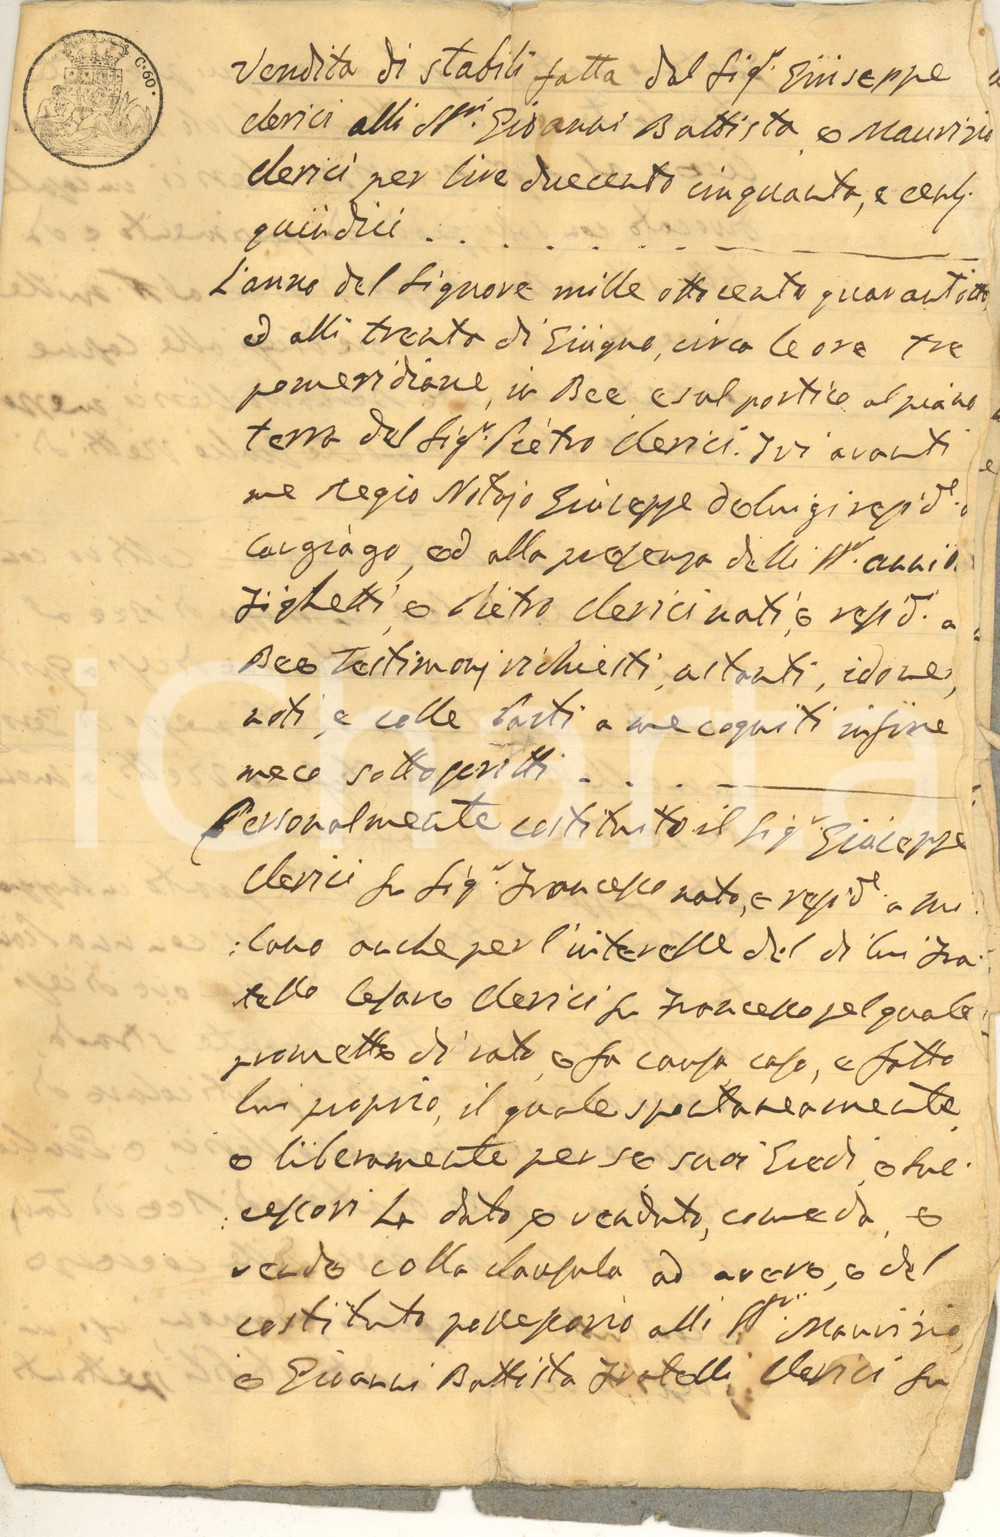 C. 60.
Vendita di stabili fatta dal Sig.r Giuseppe
Clerici alli SS.ri Giovanni Battista, e Maurizio
Clerici per lire duecento cinquanta, e cent.
quindici . . . . . . .
L'anno del Signore mille ottocento quarant'otto,
ed alli trenta di Giugno, circa le ore tre
pomeridiane, in Bee e sul portico al piano
terra del Sig.r Pietro Clerici. Ivi avanti
me Regio Notajo Giuseppe Deluigi resid.e a
Cargiago, ed alla presenza delli SS.ri
e Pietro Clerici nati, e resid.i a
Bee Testimonj richiesti, astanti, idonei,
noti, e colle Parti a me cogniti infine
meco sottoscritti . . . .
Personalmente costituito il Sig.r Giuseppe
Clerici fu Sig.r Francesco nato, e resid.e a Mi-
:lano anche per l'interesse del di lui Fra-
tello Cesare Clerici fu Francesco pel quale
promette di rato, e fa causa, caso, e fatto
lui proprio, il quale spontaneamente,
e liberamente per se suoi Eredi, e suc-
:cessori ha dato, e venduto, come dà, e
vende colla clausula ad avere, e del
costituto possessorio alli SS.ri Maurizio,
e Giovanni Battista Fratelli Clerici fu
iCharta